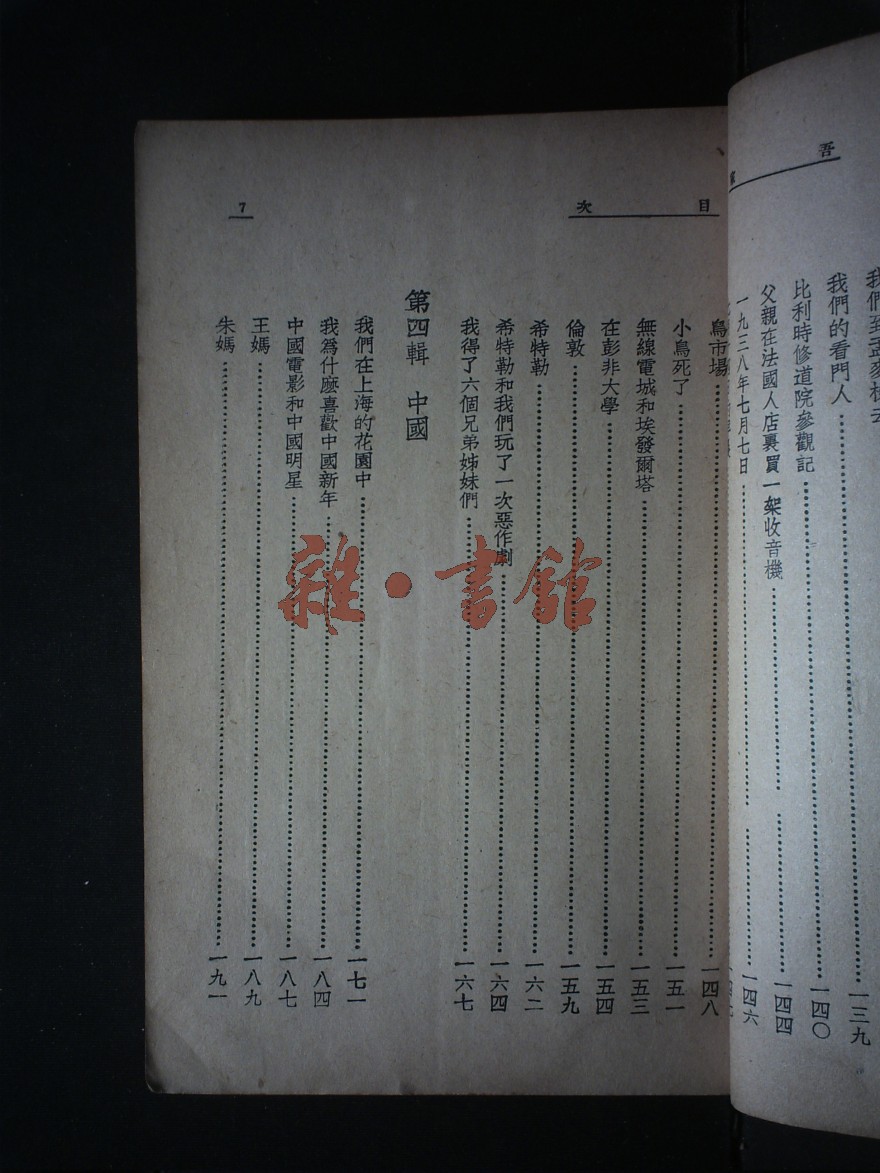 吾
我們到
我們的看門人 一三九
比利時修道院參觀記 一四〇
父親在法國人店裏買一架收音機 一四四
一九三八年七月七日 一四六
目次
鳥市場 一四八
小鳥死了 一五一
無線電城和埃發爾塔 一五三
在彭非大學 一五四
倫敦 一五九
希特勒 一六二
希特勒和我們玩了一次惡作劇 一六四
我得了六個兄弟姊妹們 一六七
第四輯 中國
我們在上海的花園中 一七一
我爲什麽喜歡中國新年 一八四
中國電影和中國明星 一八七
王媽 一八九
朱媽 一九一
7
雜·書館